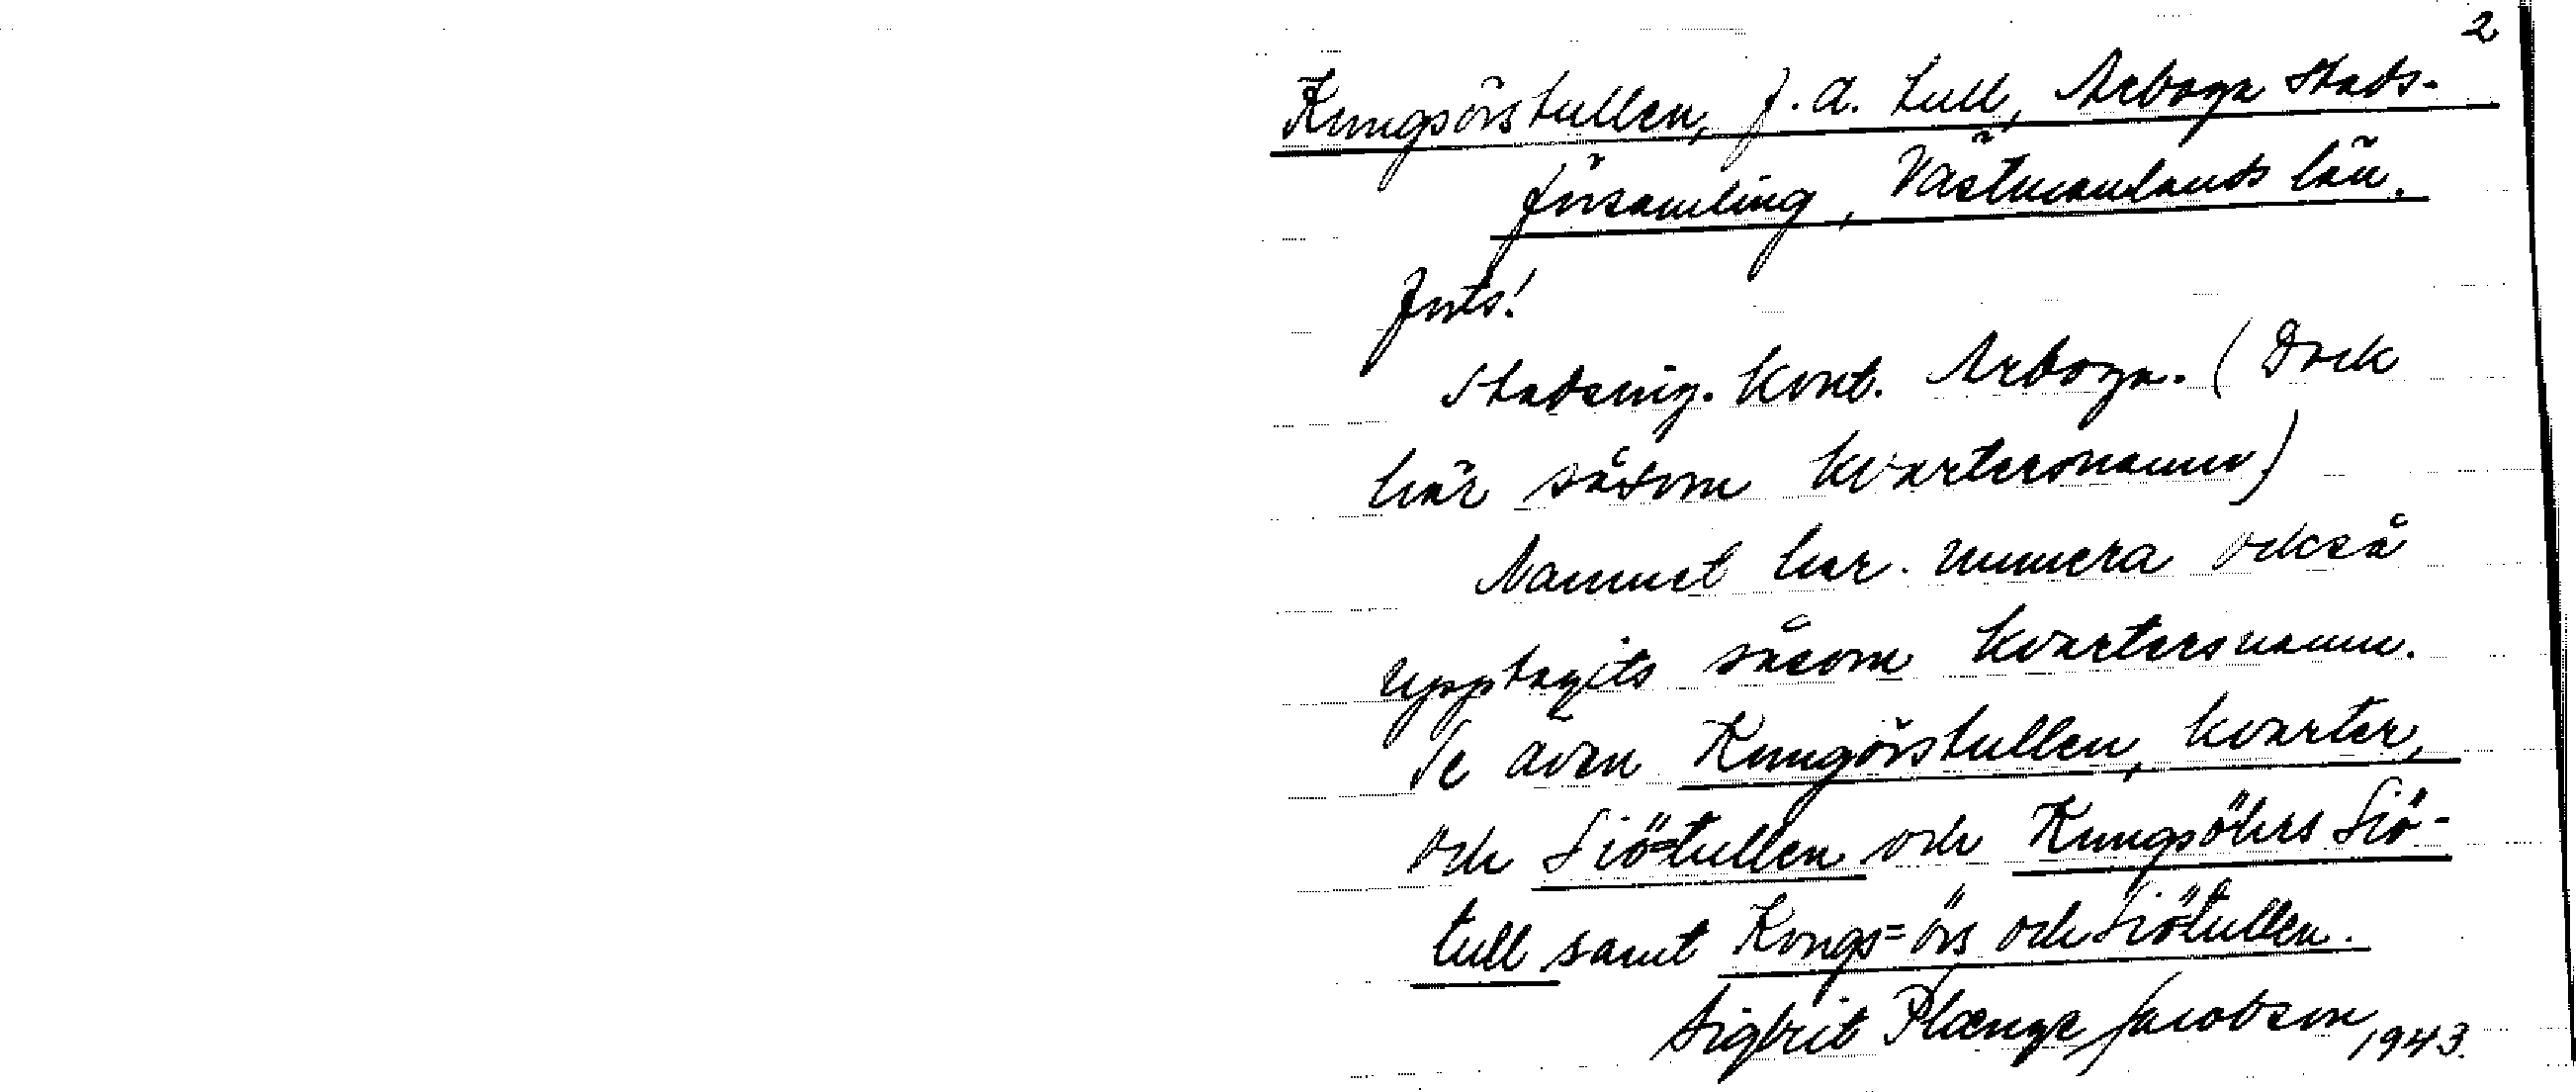 2
Kungsörstullen, f.d. tull, Arboga stads-
församling, Västmanlands län.
Forts!
Stadsing. kont. Arboga. (Dock
här såsom kvartersnamn)
Namnet har numera också
upptagits såsom kvartersnamn.
Se även Kungörstullen, kvarter,
och Siö=tullen och Kungsöhrs Siö-
tull samt Kongs=örs och Siötullen.
Sigbrit Plænge Jacobson 1943.